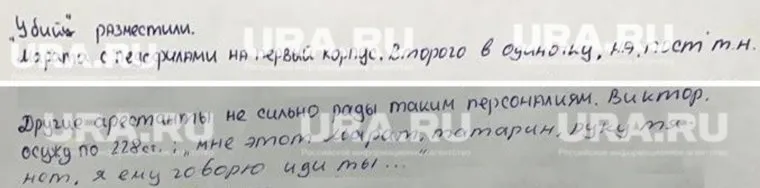 "Убийц" разместили.
Марата с педофилами на первый корпус. Второго в одиночку, на, пост т.н.
Другие арестанты не сильно рады таким персоналиям. Виктор.
осужд по 228 ст.: „мне этот Марат, татарин, руку тя
нет, я ему говорю иди ты ..."
URA.RU
URA.RU
URA.RU
URA.RU
URA.RU
Российское информационное агентство